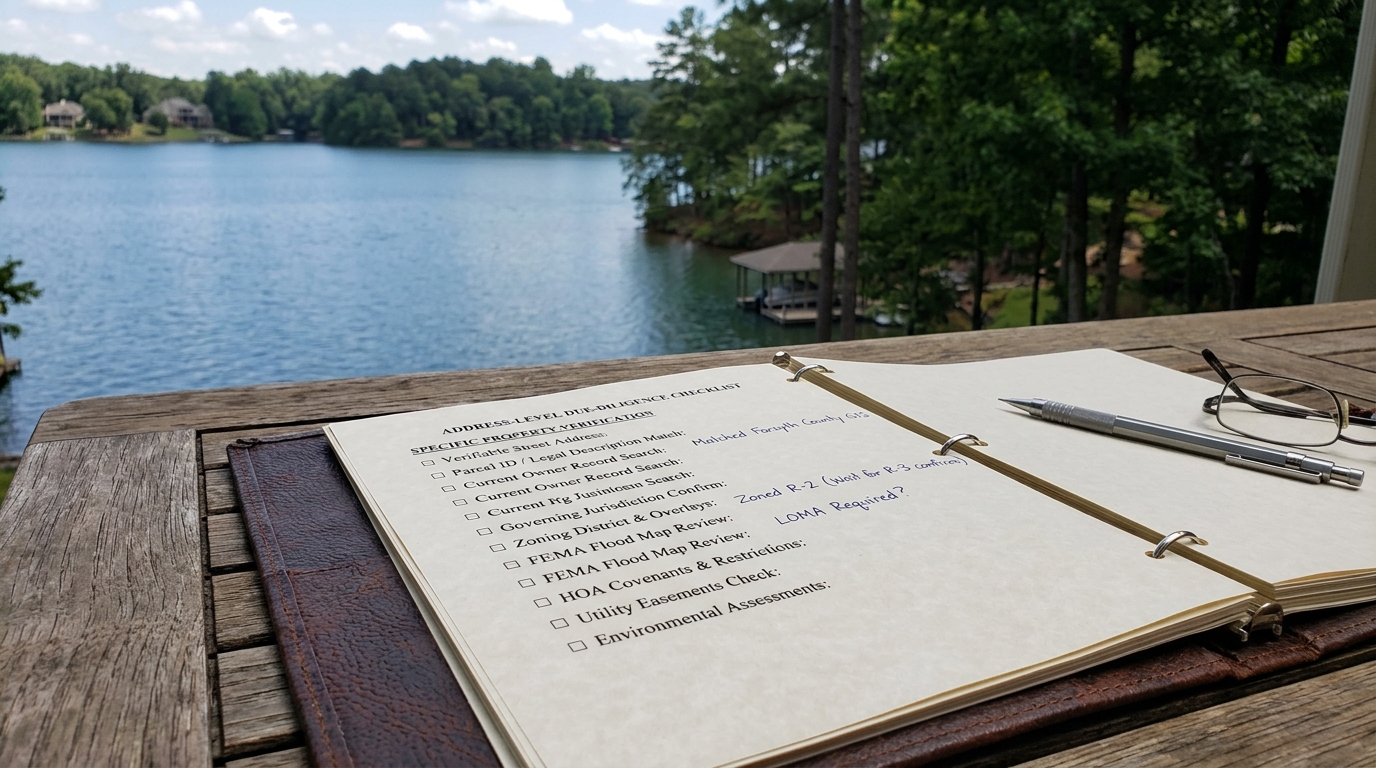 ADDRESS-LEVEL DUE-DILIGENCE CHECKLIST
SPECIFIC PROPERTY VERIFICATION
☐ Verifiable Street Address:
☐ Parcel ID / Legal Description Match: Matched Forsyth County GIS
☐ Current Owner Record Search:
☐ Current Owner Record Search:
☐ Current Search:
☐ Governing Jurisdiction Confirm:
☐ Zoning District & Overlays: Zoned R-2 (Wait for R-3 confirm)
☐ FEMA Flood Map Review: LOMA Required?
☐ FEMA Flood Map Review:
☐ HOA Covenants & Restrictions:
☐ Utility Easements Check:
☐ Environmental Assessments: